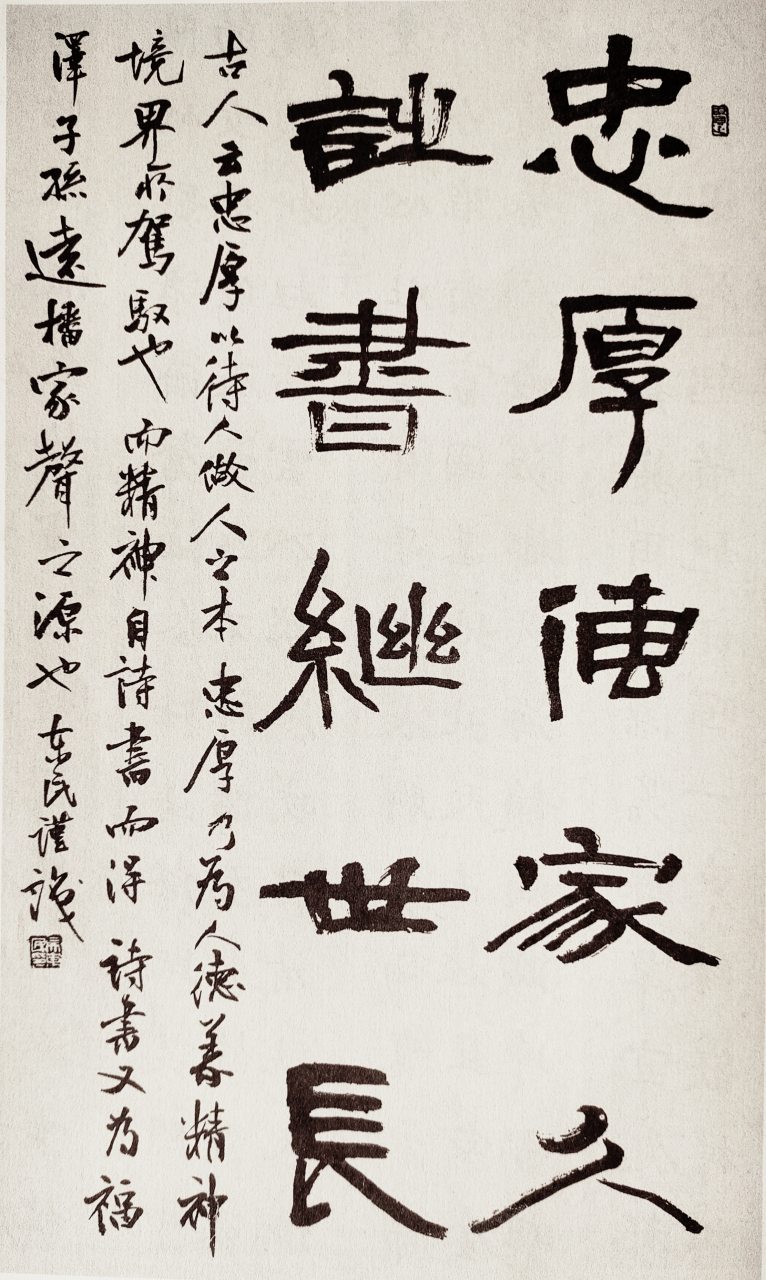 忠厚傳家久
詩書繼世長
古人云忠厚以待人做人之本忠厚乃為人德善精神
境界所駕馭也而精神自詩書而得詩書又為福
澤子孫遠播家聲之源也东民謹識